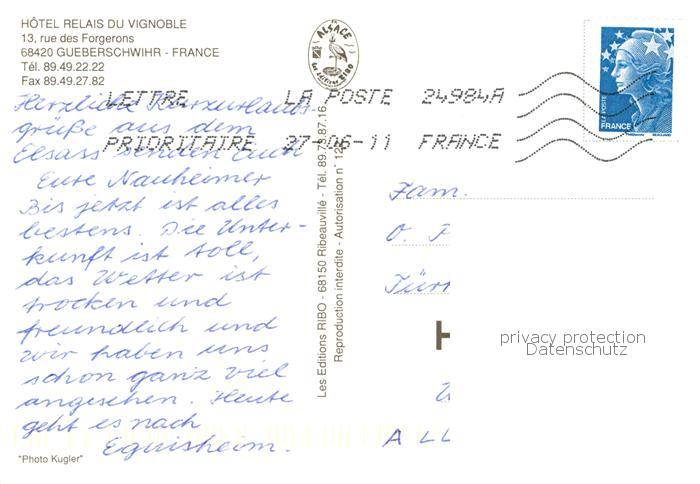 HÔTEL RELAIS DU VIGNOBLE
13, rue des Forgerons
68420 GUEBERSCHWIHR - FRANCE
Tél. 89.49.22.22
Fax 89.49.27.82
ALSACE
Les Editions RIBO
LETTRE LA POSTE 24984A
PRIORITAIRE 27-06-11 FRANCE
LA POSTE
FRANCE
Herzliche Kurzurlaubs-
grüße aus dem
Elsass senden Euch
Eure Nauheimer
Bis jetzt ist alles
bestens. Die Unter-
kunft ist toll,
das Wetter ist
trocken und
freundlich und
wir haben uns
schon ganz viel
angesehen. Heute
geht es nach
Eguisheim.
"Photo Kugler"
Les Editions RIBO - 68150 Ribeauvillé - Tél. 89.73.87.16
Reproduction interdite - Autorisation n°
Fam.
O. P
Türk
H
A L L
privacy protection
Datenschutz